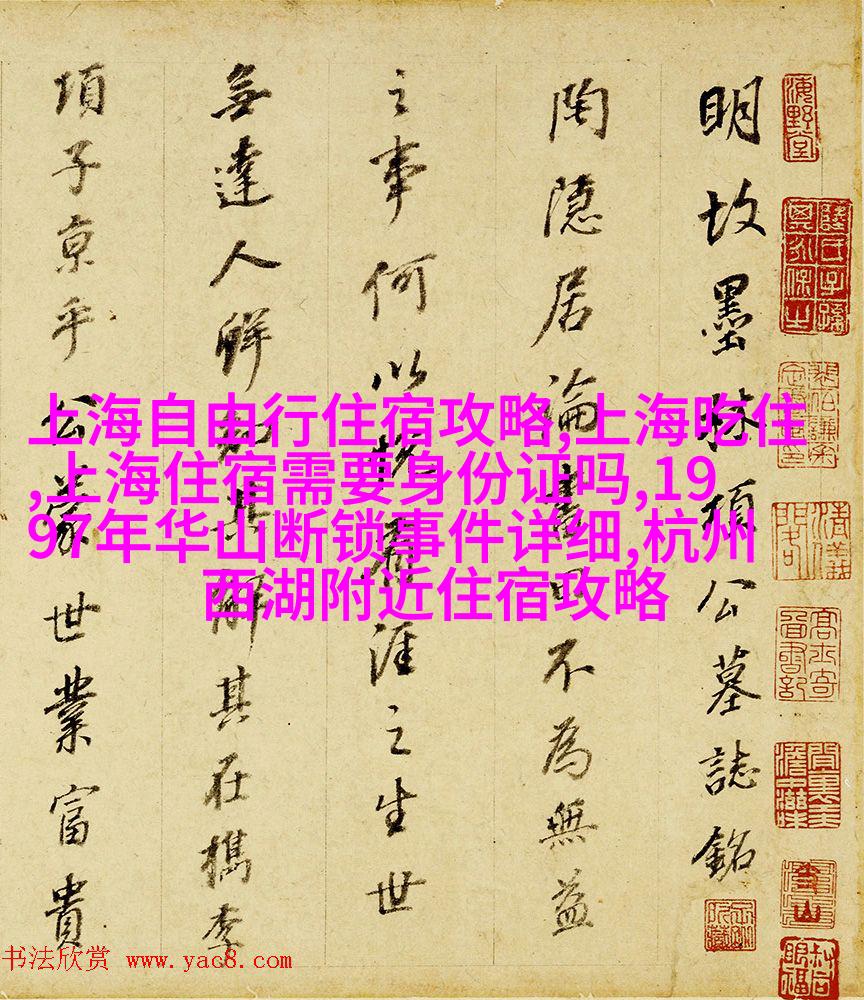 明故墨林項公墓誌銘
陶隱居論書曰不為無益
之事何以有涯之生世
無達人鮮知其解其在檇李
項子京乎公蒙世業富貴
上海自由行住宿攻略,上海吃住
,上海住宿需要身份证吗,19
97年华山断锁事件详细,杭州
西湖附近住宿攻略
海野堂
书法欣赏 www.yac8.com